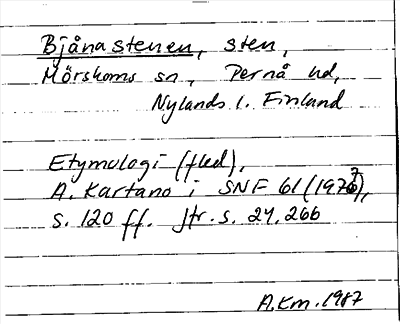 Bjånastenen, sten,
Mörskoms sn, Pernå hd,
Nylands l. Finland
Etymologi (fled).
A. Kartano i SNF 61 (197
s. 120 ff. Jfr. s. 24, 266
A.Km. 1987